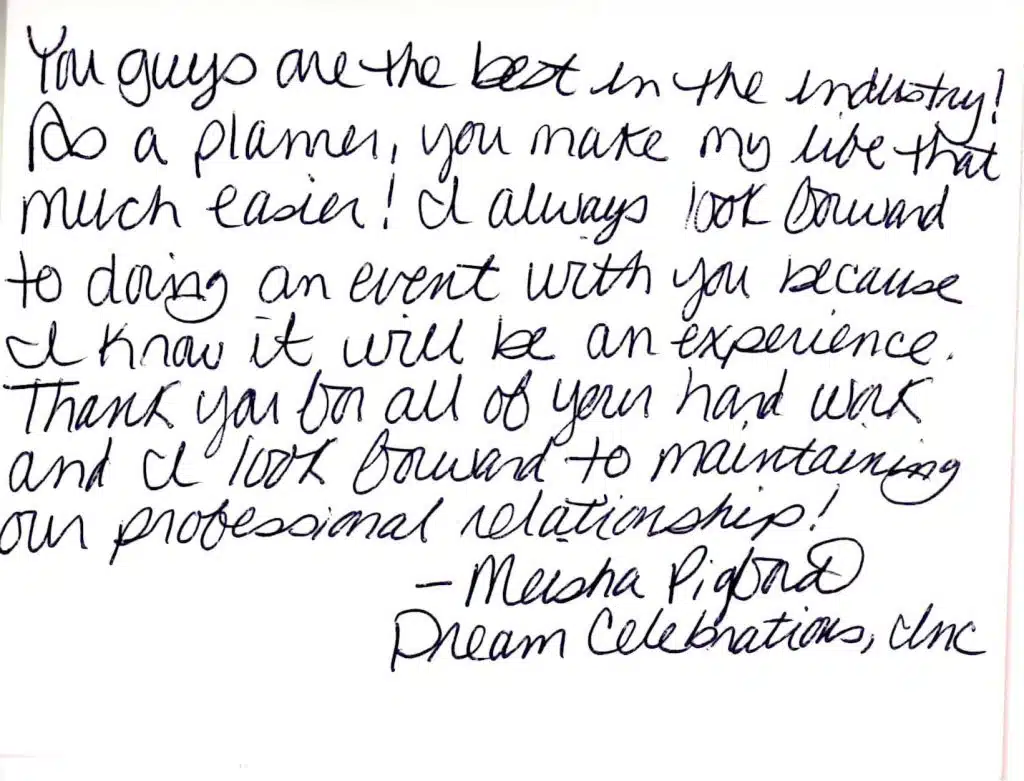 You guys are the best in the industry!
As a planner, you make my life that
much easier! I always look forward
to doing an event with you because
I know it will be an experience.
Thank you for all of your hard work
and I look forward to maintaining
our professional relationship!
- Meisha Pigford
Dream Celebrations, Inc